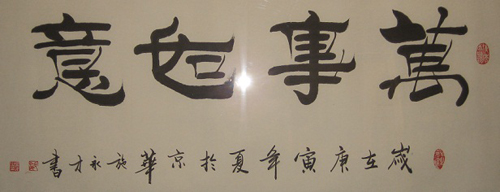 萬事如意
歲在庚寅年夏於京華施永才書